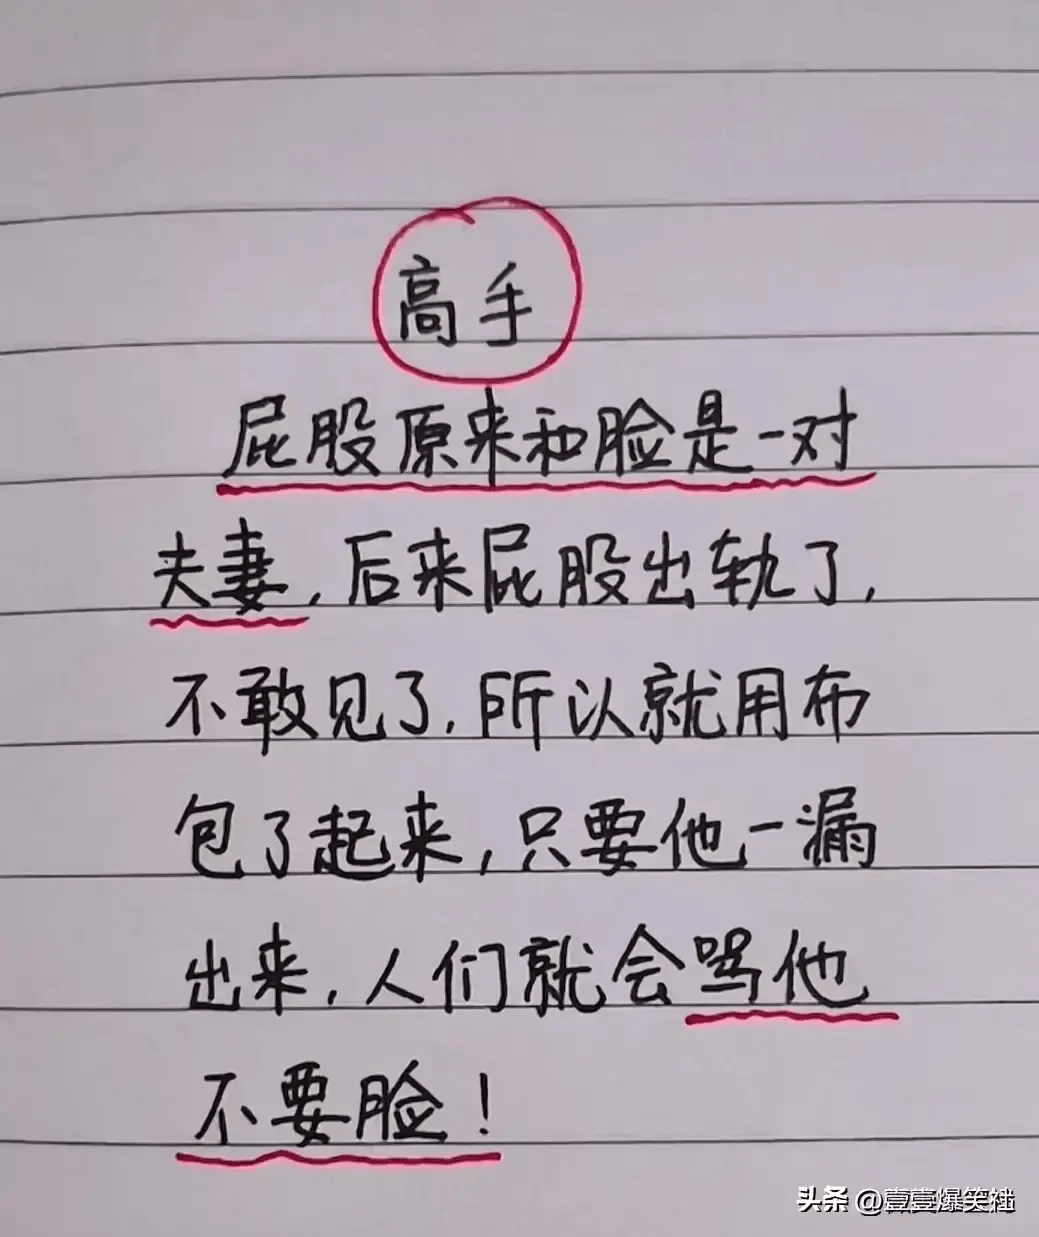 高手
屁股原来和脸是一对
夫妻,后来屁股出轨了,
不敢见了,所以就用布
包了起来,只要他一漏
出来,人们就会骂他
不要脸!
头条 @壹壹爆笑社